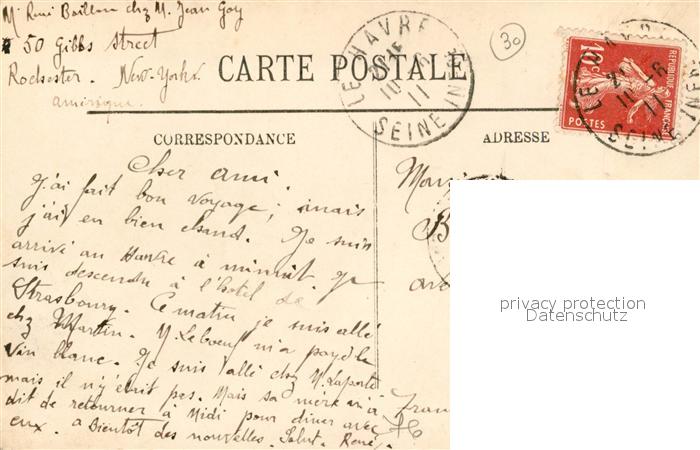 Mr René Baillon chez M. Jean Goy
50 Gibbs Street
Rochester. New-York.
Amérique.
30
CARTE POSTALE
LE HAVRE
10 -6
11
SEINE INF
10c
REPUBLIQUE FRANÇAISE
POSTES
LE HAVRE
-6
11
SEINE INF
CORRESPONDANCE
ADRESSE
Cher ami.
J'ai fait bon voyage; mais
j'ai eu bien chaud. Je suis
arrivé au Havre à minuit. Je
suis descendu à l'hotel de
Strasbourg. Ce matin je suis allé
chez Martin. M. Leboeuf m'a payé le
Vin blanc. Je suis allé chez M. Laporte
mais il n'y était pas. Mais sa mère m'a
dit de retourner à Midi pour diner avec
eux. a Bientôt des nouvelles. Salut. René
privacy protection
Datenschutz